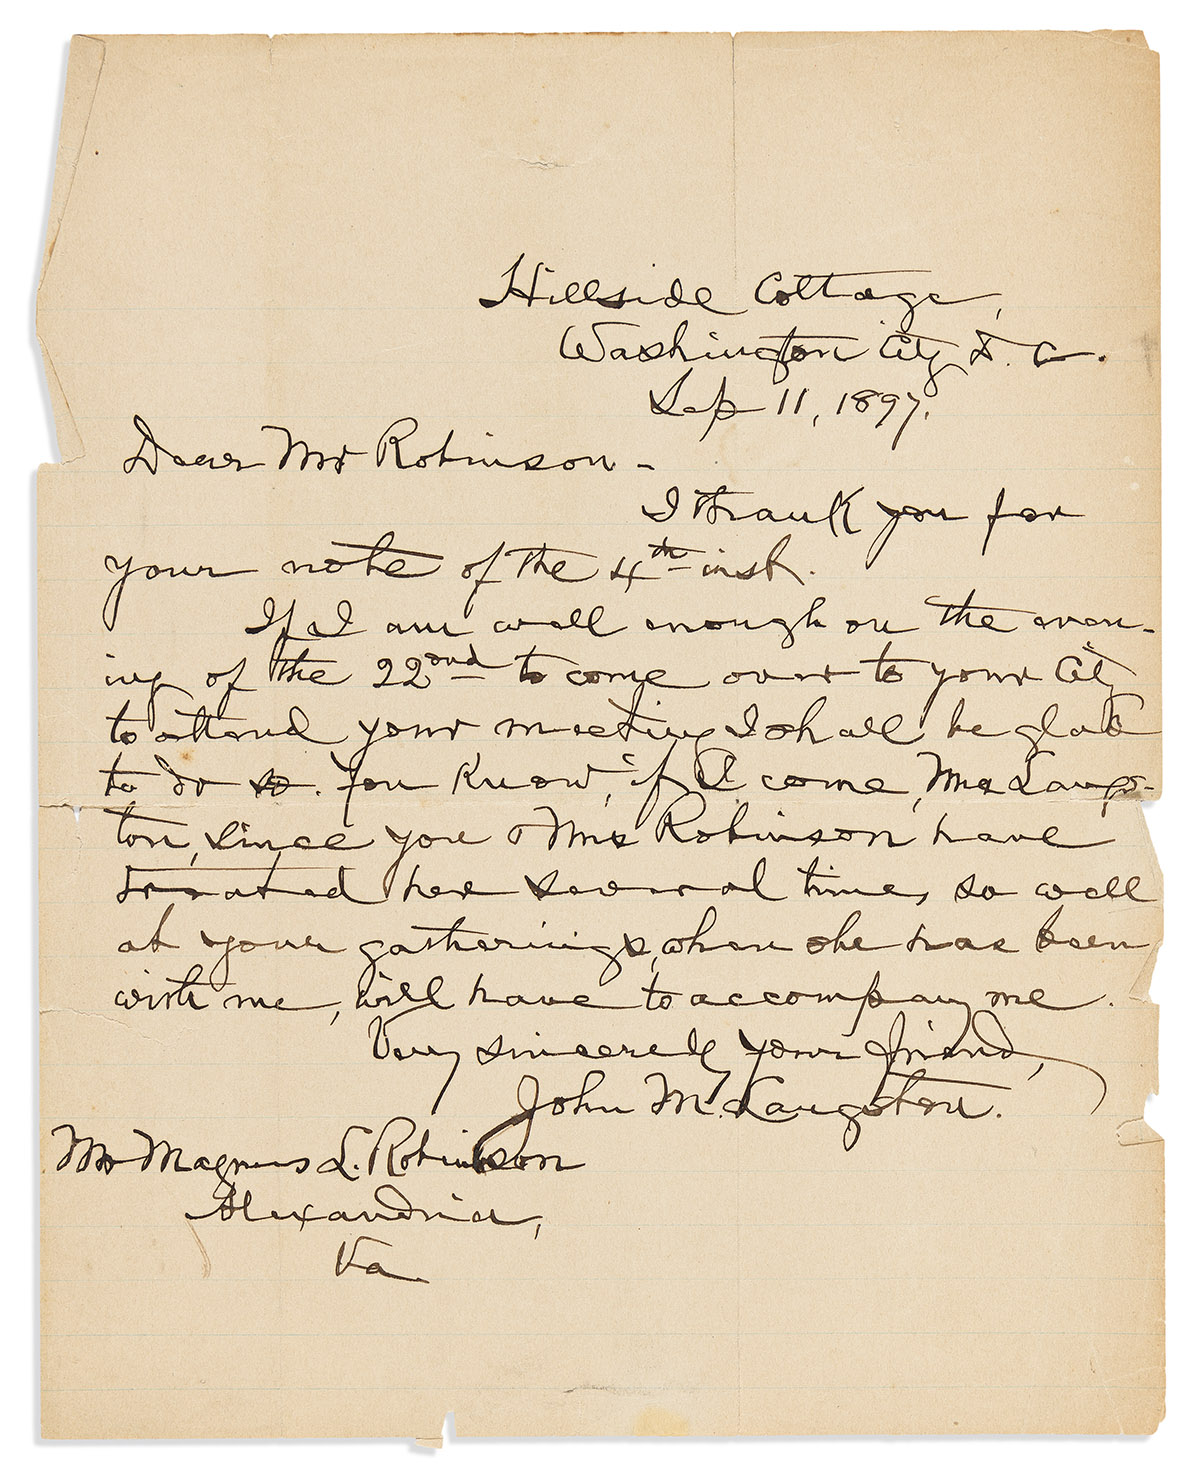 Hillside Cottage,
Washington City D. C.
Sep 11, 1897.
Dear Mr Robinson -
I thank you for
your note of the 4th inst.
If I am well enough on the even-
ing of the 22nd to come over to your City
to attend your meeting I shall be glad
to do so. You know, if I come, Mrs Langs-
ton, since you & Mrs Robinson have
treated her several times so well
at your gatherings, when she has been
with me, will have to accompany me.
Very sincerely your friend,
John M. Langston.
Mr Magnus L. Robinson
Alexandria,
Va